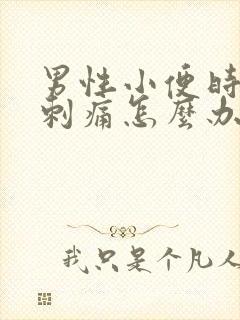 男性小便時
刺痛怎麼办
我只是个凡人